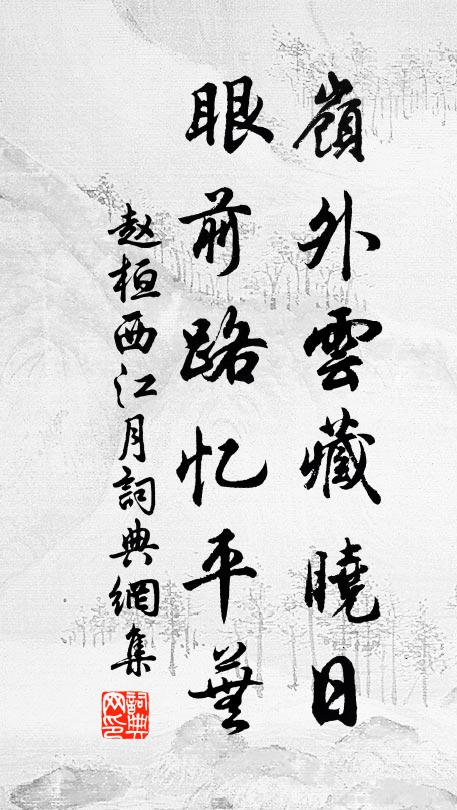 嶺外雲藏曉日
眼前路忆平蕪
赵桓西江月詞典網集
詞典网印